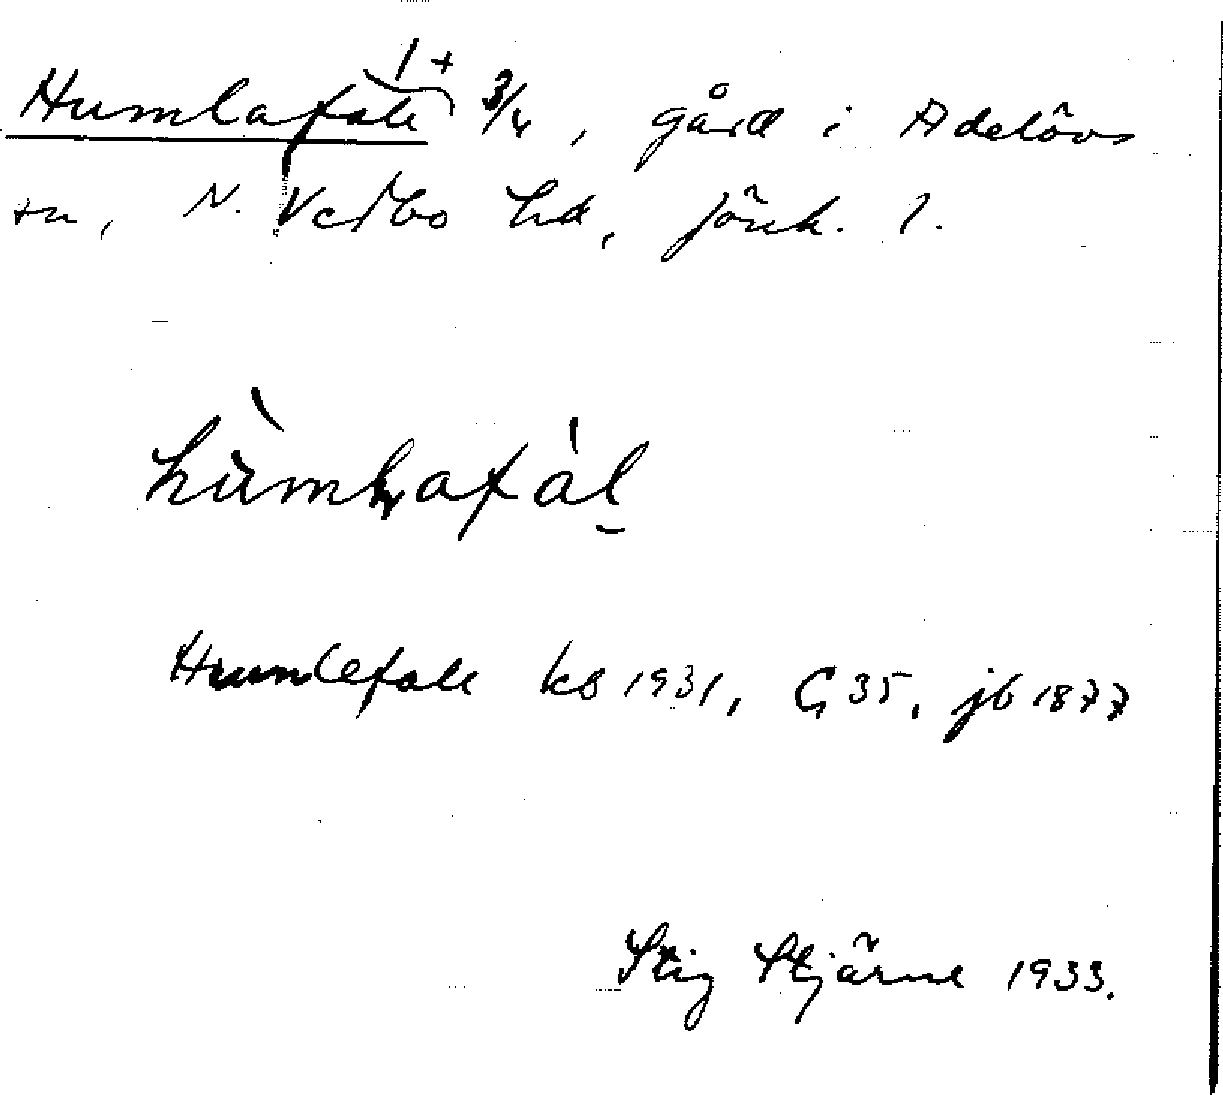 Humlafall 1 + 3/4, gård i Adelövs
sn, N. Vedbo hd, Jönk. l.
hùmlafàl
Humlefall kb 1931, G 35, jb 1877
Stig Stjärne 1933.